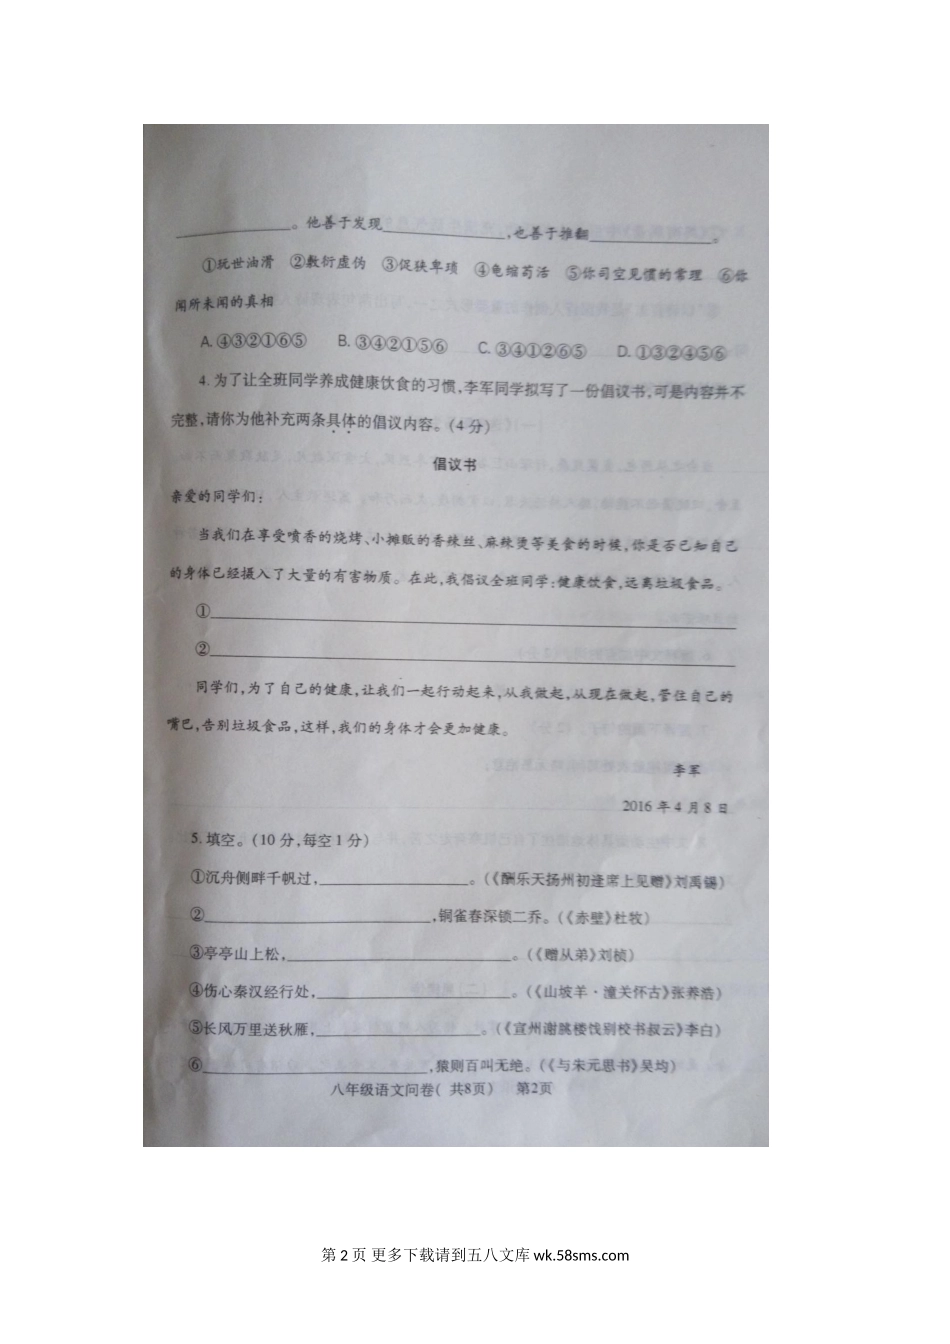 ____________。他善于发现____________,也善于推翻____________。
①玩世油滑 ②敷衍虚伪 ③促狭卑琐 ④龟缩苟活 ⑤你司空见惯的常理 ⑥你
闻所未闻的真相
A.④③②①⑥⑤ B.③④②①⑤⑥ C.③④①②⑥⑤ D.①③②④⑤⑥
4.为了让全班同学养成健康饮食的习惯,李军同学拟写了一份倡议书,可是内容并不
完整,请你为他补充两条具体的倡议内容。(4分)
倡议书
亲爱的同学们:
当我们在享受喷香的烧烤、小摊贩的香辣丝、麻辣烫等美食的时候,你是否已知自己
的身体已经摄入了大量的有害物质。在此,我倡议全班同学:健康饮食,远离垃圾食品。
①____________
②____________
同学们,为了自己的健康,让我们一起行动起来,从我做起,从现在做起,管住自己的
嘴巴,告别垃圾食品,这样,我们的身体才会更加健康。
李军
2016年4月8日
5.填空。(10分,每空1分)
①沉舟侧畔千帆过,____________。(《酬乐天扬州初逢席上见赠》刘禹锡)
②____________,铜雀春深锁二乔。(《赤壁》杜牧)
③亭亭山上松,____________。(《赠从弟》刘桢)
④伤心秦汉经行处,____________。(《山坡羊·潼关怀古》张养浩)
⑤长风万里送秋雁,____________。(《宣州谢朓楼饯别校书叔云》李白)
⑥____________,猿则百叫无绝。(《与朱元思书》吴均)
八年级语文问卷( 共8页) 第2页
第 2 页 更多下载请到五八文库 wk.58sms.com